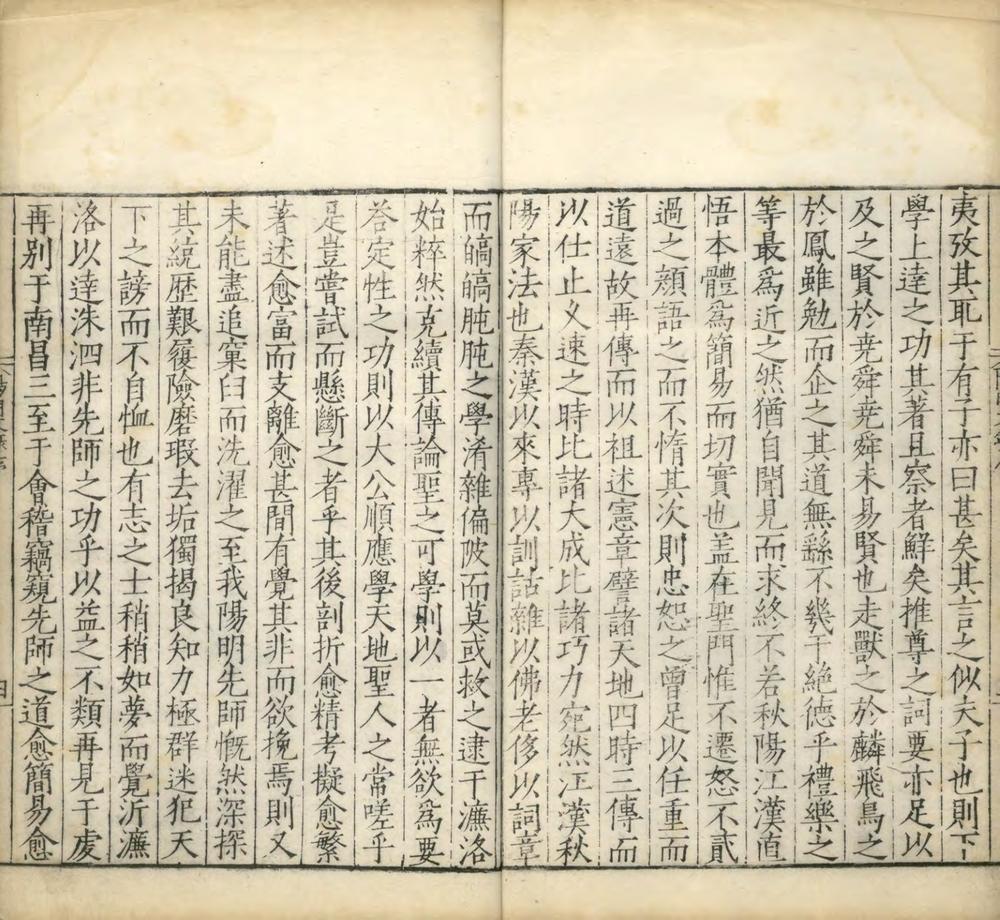 夷攷其恥于有子亦曰甚矣其言之似夫子也則下
學上達之功其著且察者鮮矣推尊之詞要亦足以
及之賢於尭舜尭舜未易賢也走獸之於麟飛鳥之
於鳳雖勉而企之其道無繇不幾于絕德乎禮樂之
等最爲近之然猶自聞見而求終不若秋陽江漢直
悟本體爲簡易而切實也盖在聖門惟不遷怒不貳
過之顔語之而不惰其次則忠恕之曾足以任重而
道遠故再傳而以祖述憲章譬諸天地四時三傳而
以仕止久速之時比諸大成比諸巧力宛然江漢秋
陽家法也秦漢以來專以訓詁雜以佛老侈以詞章
而皜皜肫肫之學淆雜偏陂而莫或救之逮于濂洛
始粹然克續其傳論聖之可學則以一者無欲爲要
荅定性之功則以大公順應學天地聖人之常嗟乎
是豈嘗試而懸斷之者乎其後剖折愈精考擬愈繁
著述愈富而支離愈甚間有覺其非而欲挽焉則又
未能盡追窠臼而洗濯之至我陽明先師慨然深探
其統歷艱履險磨瑕去垢獨揭良知力極群迷犯天
下之謗而不自恤也有志之士稍稍如夢而覺泝濂
洛以達洙泗非先師之功乎以益之不類再見于虔
再別于南昌三至于會稽竊窺先師之道愈簡易愈
四